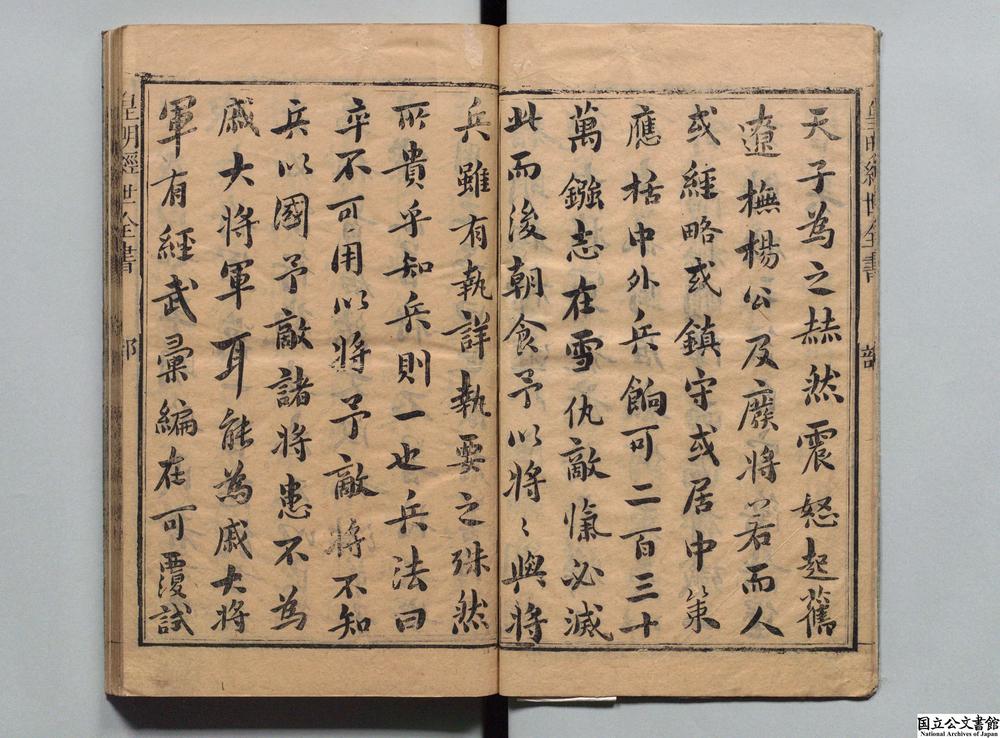 天子為之赫然震怒起舊
遼撫楊公及廢將若而人
或經略或鎮守或居中策
應括中外兵餉可二百三十
萬鏹志在雪仇敵愾必滅
此而後朝食予以將〻與將
兵雖有執詳執要之殊然
所貴乎知兵則一也兵法曰
卒不可用以將予敵將不知
兵以國予敵諸將患不為
戚大將軍耳能為戚大將
軍有經武彙編在可覆試
皇明經世全書
國立公文書館
National Archives of Japan